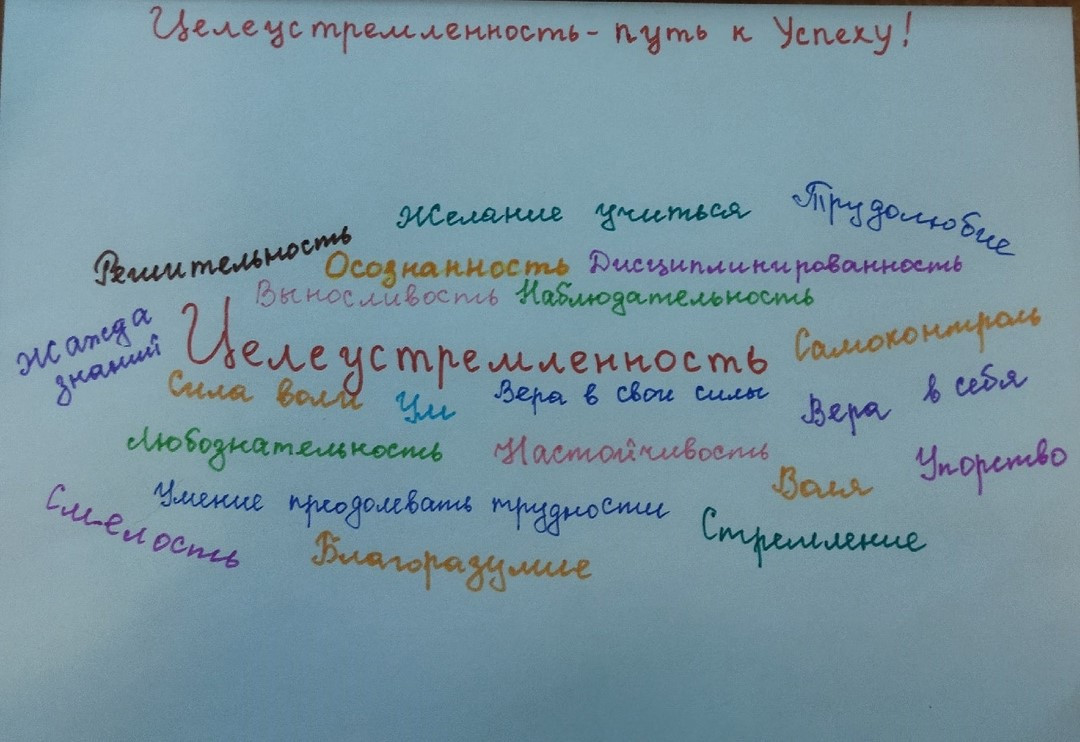 Целеустремленность - путь к Успеху!
Желание учиться
Трудолюбие
Решительность
Осознанность
Дисциплинированность
Выносливость
Наблюдательность
Жажда
знаний
Целеустремленность
Самоконтроль
Сила воли
Ум
Вера в свои силы
Вера в себя
Любознательность
Настойчивость
Воля
Упорство
Смелость
Умение преодолевать трудности
Стремление
Благоразумие